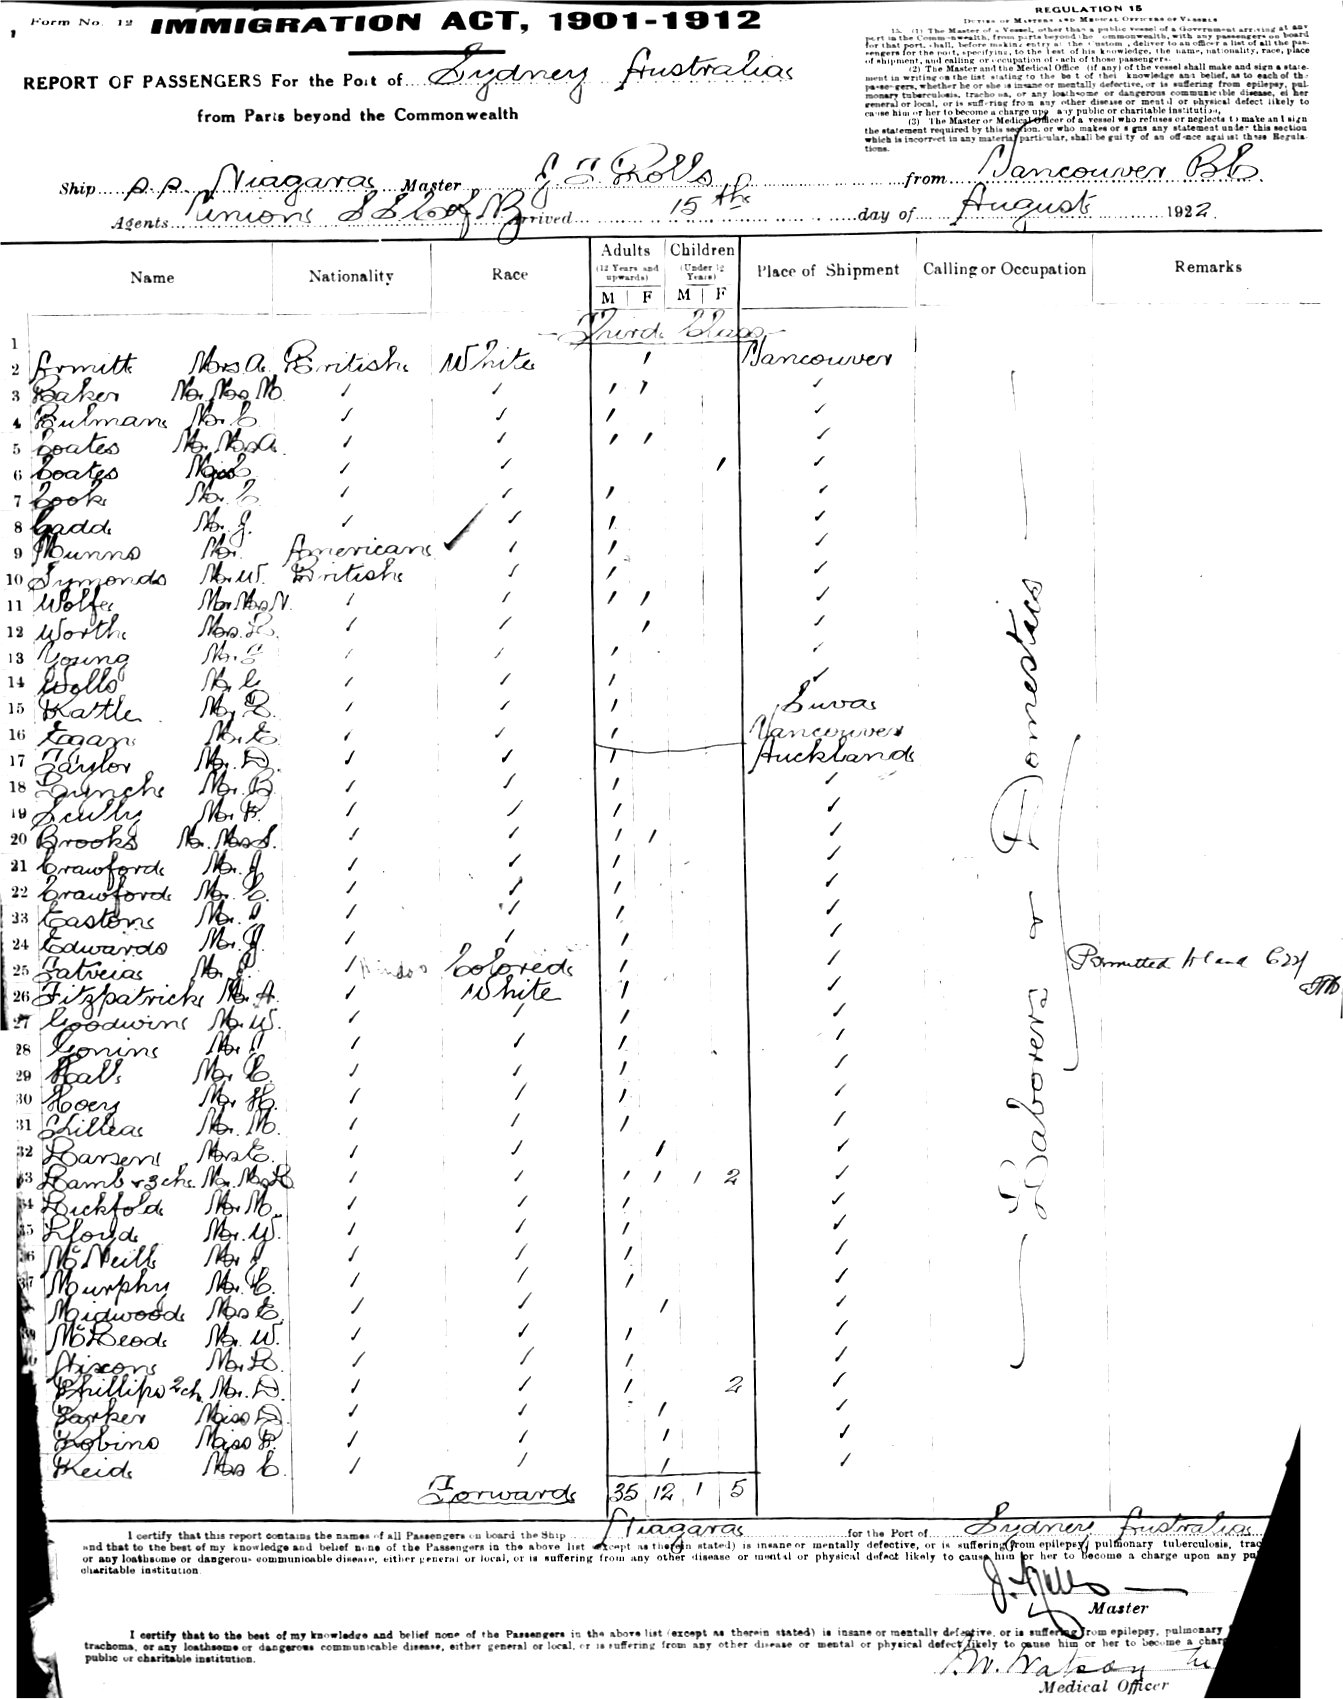 Form No. 12
IMMIGRATION ACT, 1901-1912
REPORT OF PASSENGERS For the Port of Sydney Australia
from Parts beyond the Commonwealth
REGULATION 15
DUTIES OF MASTERS AND MEDICAL OFFICERS OF VESSELS
15. (1) The Master of a Vessel, other than a public vessel of a Government arriving at any
port in the Commonwealth, from parts beyond the Commonwealth, with any passengers on board
for that port, shall, before making entry at the Customs, deliver to an officer a list of all the pas-
sengers for the port, specifying, to the best of his knowledge, the name, nationality, race, place
of shipment, and calling or occupation of each of those passengers.
(2) The Master and the Medical Office (if any) of the vessel shall make and sign a state-
ment in writing on the list stating to the best of their knowledge and belief, as to each of the
passengers, whether he or she is insane or mentally defective, or is suffering from epilepsy, pul-
monary tuberculosis, trachoma, or any loathsome or dangerous communicable disease, either
general or local, or is suffering from any other disease or mental or physical defect likely to
cause him or her to become a charge upon any public or charitable institution.
(3) The Master or Medical Officer of a vessel who refuses or neglects to make and sign
the statement required by this section, or who makes or signs any statement under this section
which is incorrect in any material particular, shall be guilty of an offence against these Regula-
tions.
Ship s.s. Niagara Master J T Rolls from Vancouver BC
Agents Union S S Co of NZ Arrived 15th day of August 1922
Name Nationality Race Adults (12 Years and upwards) M F Children (Under 12 Years) M F Place of Shipment Calling or Occupation Remarks
1 Third Class
2 Armitt Mrs A. British White ′ Vancouver
3 Baker Mr. Mrs M. ′ ′ ′ ′ ′
4 Bulman Mr. C ′ ′ ′ ′
5 Coates Mr. Mrs A. ′ ′ ′ ′ ′
6 Coates Miss ′ ′ ′ ′
7 Cook Mr. C ′ ′ ′ ′
8 Gadd Mr. J. ′ ′ ′ ′
9 Munns Mr. American ✓ ′ ′ ′
10 Symonds Mr. W. British ′ ′ ′
11 Wolfe Mr. Mrs N. ′ ′ ′ ′ ′
12 Worth Mrs. ′ ′ ′ ′
13 Young Mr. ′ ′ ′ ′
14 Wells Mr. C ′ ′ ′ ′
15 Kattle Mr. ′ ′ ′ Suva
16 Egan Mr. E. ′ ′ ′ Vancouver
17 Taylor Mr. D. ′ ′ ′ Auckland
18 Mr. B. ′ ′ ′ ′
19 Scully Mr. P. ′ ′ ′ ′
20 Brooks Mr. Mrs S. ′ ′ ′ ′ ′
21 Crawford Mr. J. ′ ′ ′ ′
22 Crawford Mr. C. ′ ′ ′ ′
23 Easton Mr. ′ ′ ′ ′
24 Edwards Mr. ′ ′ ′ ′
25 Mr. ′ Hindoo Colored ′ ′ Permitted to land
26 Fitzpatrick Mr. A. ′ White ′ ′
27 Goodwin Mr. W. ′ ′ ′ ′
28 Gonin Mr. ′ ′ ′ ′
29 Hall Mr. C. ′ ′ ′ ′
30 Hoey Mr. H. ′ ′ ′ ′
31 Mr. M. ′ ′ ′ ′
32 Larsen Mrs E. ′ ′ ′ ′
33 3 ch. Mr. Mrs ′ ′ ′ ′ ′ 2 ′
34 Mr. M. ′ ′ ′ ′
35 Lloyd Mr. W. ′ ′ ′ ′
36 McNeill Mr. ′ ′ ′ ′
37 Murphy Mr. C. ′ ′ ′ ′
Midwood Mrs E. ′ ′ ′ ′
39 McLeod Mr. W. ′ ′ ′ ′
Nixon Mr. ′ ′ ′ ′
Phillips 2 ch. Mr. D. ′ ′ ′ 2 ′
Parker Miss D. ′ ′ ′ ′
Robins Miss ′ ′ ′ ′
Reid Mrs C. ′ ′ ′ ′
Laborers or Domestics
Forward 35 12 1 5
I certify that this report contains the names of all Passengers on board the Ship Niagara for the Port of Sydney Australia
and that to the best of my knowledge and belief none of the Passengers in the above list except as therein stated) is insane or mentally defective, or is suffering from epilepsy, pulmonary tuberculosis, trac
or any loathsome or dangerous communicable disease, either general or local, or is suffering from any other disease or mental or physical defect likely to cause him or her to become a charge upon any pu
charitable institution.
Master
I certify that to the best of my knowledge and belief none of the Passengers in the above list (except as therein stated) is insane or mentally defective, or is suffering from epilepsy, pulmonary
trachoma, or any loathsome or dangerous communicable disease, either general or local, or is suffering from any other disease or mental or physical defect likely to cause him or her to become a charg
public or charitable institution.
W. Watson
Medical Officer